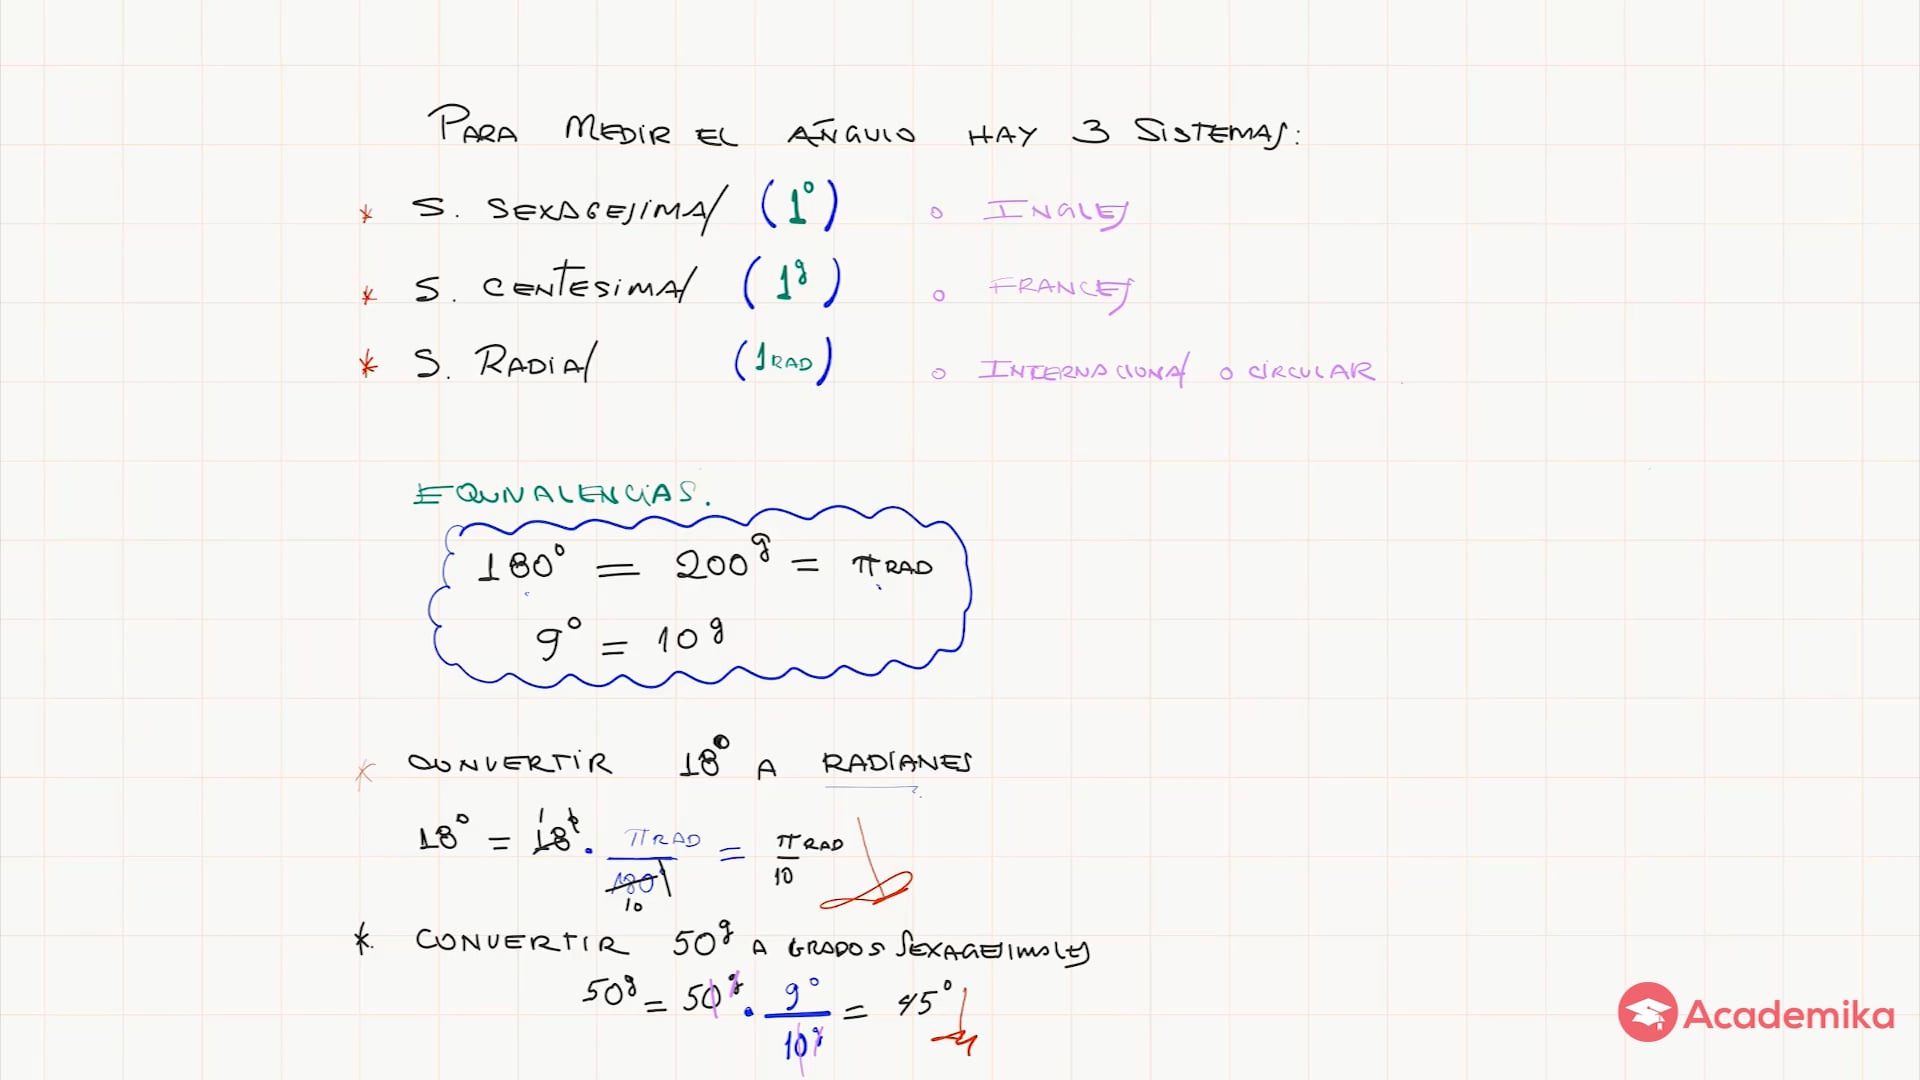 PARA MEDIR EL ANGULO HAY 3 SISTEMAS:
* S. SEXAGESIMAL (1°) ° INGLES
* S. CENTESIMAL (1ᵍ) ° FRANCES
* S. RADIAL (1 RAD) ° INTERNACIONAL O CIRCULAR
EQUIVALENCIAS.
180° = 200ᵍ = π RAD
9° = 10ᵍ
* CONVERTIR 18° A RADIANES
18° = 18° · π RAD / 180° = π RAD / 10
1
10
* CONVERTIR 50ᵍ A GRADOS SEXAGESIMALES
50ᵍ = 50ᵍ · 9° / 10ᵍ = 45°
Academika